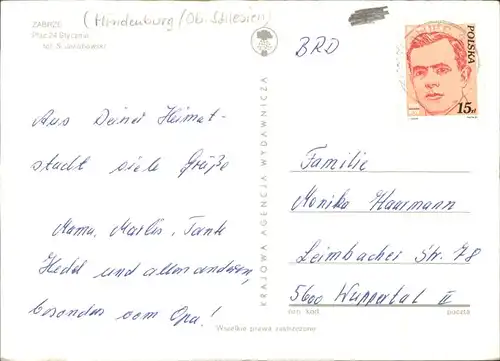 ZABRZE
(Hindenburg/Ob. Schlesien)
Plac 24 Stycznia
fot. S. Jakubowski
BRD
POLSKA
15 zł
Aus Deiner Heimat-
stadt viele Grüße
Mama, Marlis, Tante
Hedel und allen anderen,
besonders vom Opa!
KRAJOWA AGENCJA WYDAWNICZA
Familie
Monika Haarmann
Leimbacher Str. 78
5600 Wuppertal II
nr kod. poczta
Wszelkie prawa zastrzeżone